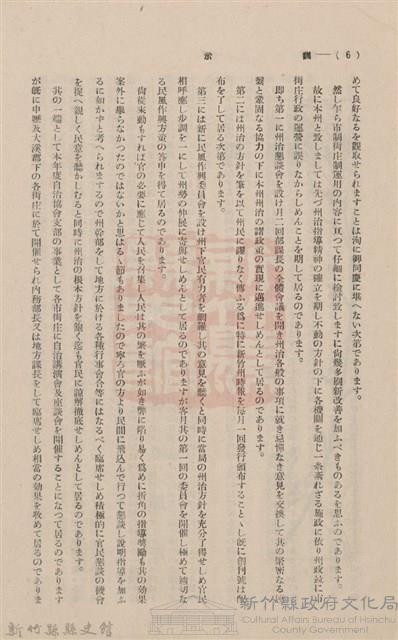 (6)――訓示
めて良好なるを觀取せられますことは洵に御同慶に堪へない次第であります。
然し乍ら市制街庄制運用の内容に亙つて仔細に檢討致しますに尚幾多刷新改善を加ふべきものあるを思ふのであります。
故に本州と致しましては先づ州治指導精神の確立を期し不動の方針の下に各機關を通じ一糸紊れざる施政に依り州政竝に市
街庄行政の運營に誤りなからしめんことを期して居るのであります。
即ち第一に州治懇談會を設け月二回部課長の全體會議を開き州治各般の事項に就き忌憚なき意見を交換して其の緊密なる
繫と鞏固なる協力の下に本州州治の諸政策の實現に邁進せしめんとして居るのであります。
第二には州治の方針を筆を以て州民に謬りなく傳ふる爲に特に新竹州時報を每月一回發行頒布することゝし既に創刊號は
布を了して居る次第であります。
第三には新に民風作興委員會を設け州下官民有力者を網羅し其の意見を聽くと同時に當局の州治方針を充分了得せしめ官民
相呼應し步調を一にして州勢の伸展に寄與せしめんとして居るのでありますが客月其の第一回の委員會を開催し極めて適切な
る民風作興方策の答申を得て居るのであります。
尚從來動もすれば官の必要に應じて人民を召集し人民は其の煩を厭ふが如き弊に陷り易く爲めに折角の指導奬勵も其の効果
案外に擧らなかつたのではないかと思はるゝ節もありましたので寧ろ官の方より民間に飛込んで行つて懇談し說明指導を加ふ
るに如かずと考へられますので州幹部をして地方に於ける各種行事會合等にはなるべく臨席せしめ積極的に官民懇談の機會
を捉へ親しく民意を聽かしむると同時に州治の根本方針を飽く迄も官民に諒解徹底せしめんとして居るのであります。
其の一端として本年度自治協會支部の事業として各市街庄に自治講演會及座談會を開催することになつて居るのであります
が既に中壢及大溪郡下の各街庄に於て開催せられ内務部長又は地方課長をして臨席せしめ相當の効果を收めて居るのでありま
新竹縣縣史館
新竹縣政府文化局
Cultural Affairs Bureau of Hsinchu
County Government